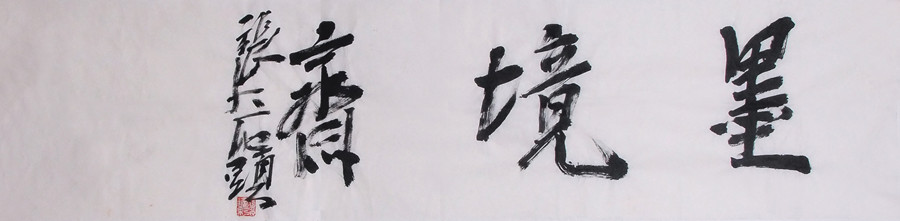 墨境齋
張大石頭